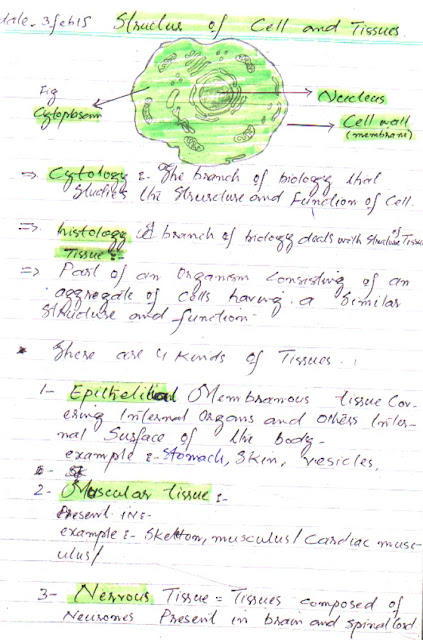 date. 3 feb 15 Structur of Cell and Tissues.
Fig
Cytoplosom
Nucleus
Cell wall
(membrane)
⇒ Cytology :- The branch of biology that
Studies the Structure and Function of Cell.
⇒ histology branch of biology deals with Structure of Tissue
Tissue :-
⇒ Part of an Organism Consisting of an
aggregate of cells having a Similar
Structure and function.
* There are 4 Kinds of Tissues.
1- Epithelial Membranous tissue Cov-
ering Internal Organs and others Inter-
nal Surface of the body-
example :- Stomach, Skin, vesicles,
2- Muscular tissue :-
Present in:-
example :- Skeltton, musculus/ Cardiac musc-
ulus/
3- Nervous Tissue = Tissues composed of
Neurones Present in brain and Spinal Cord